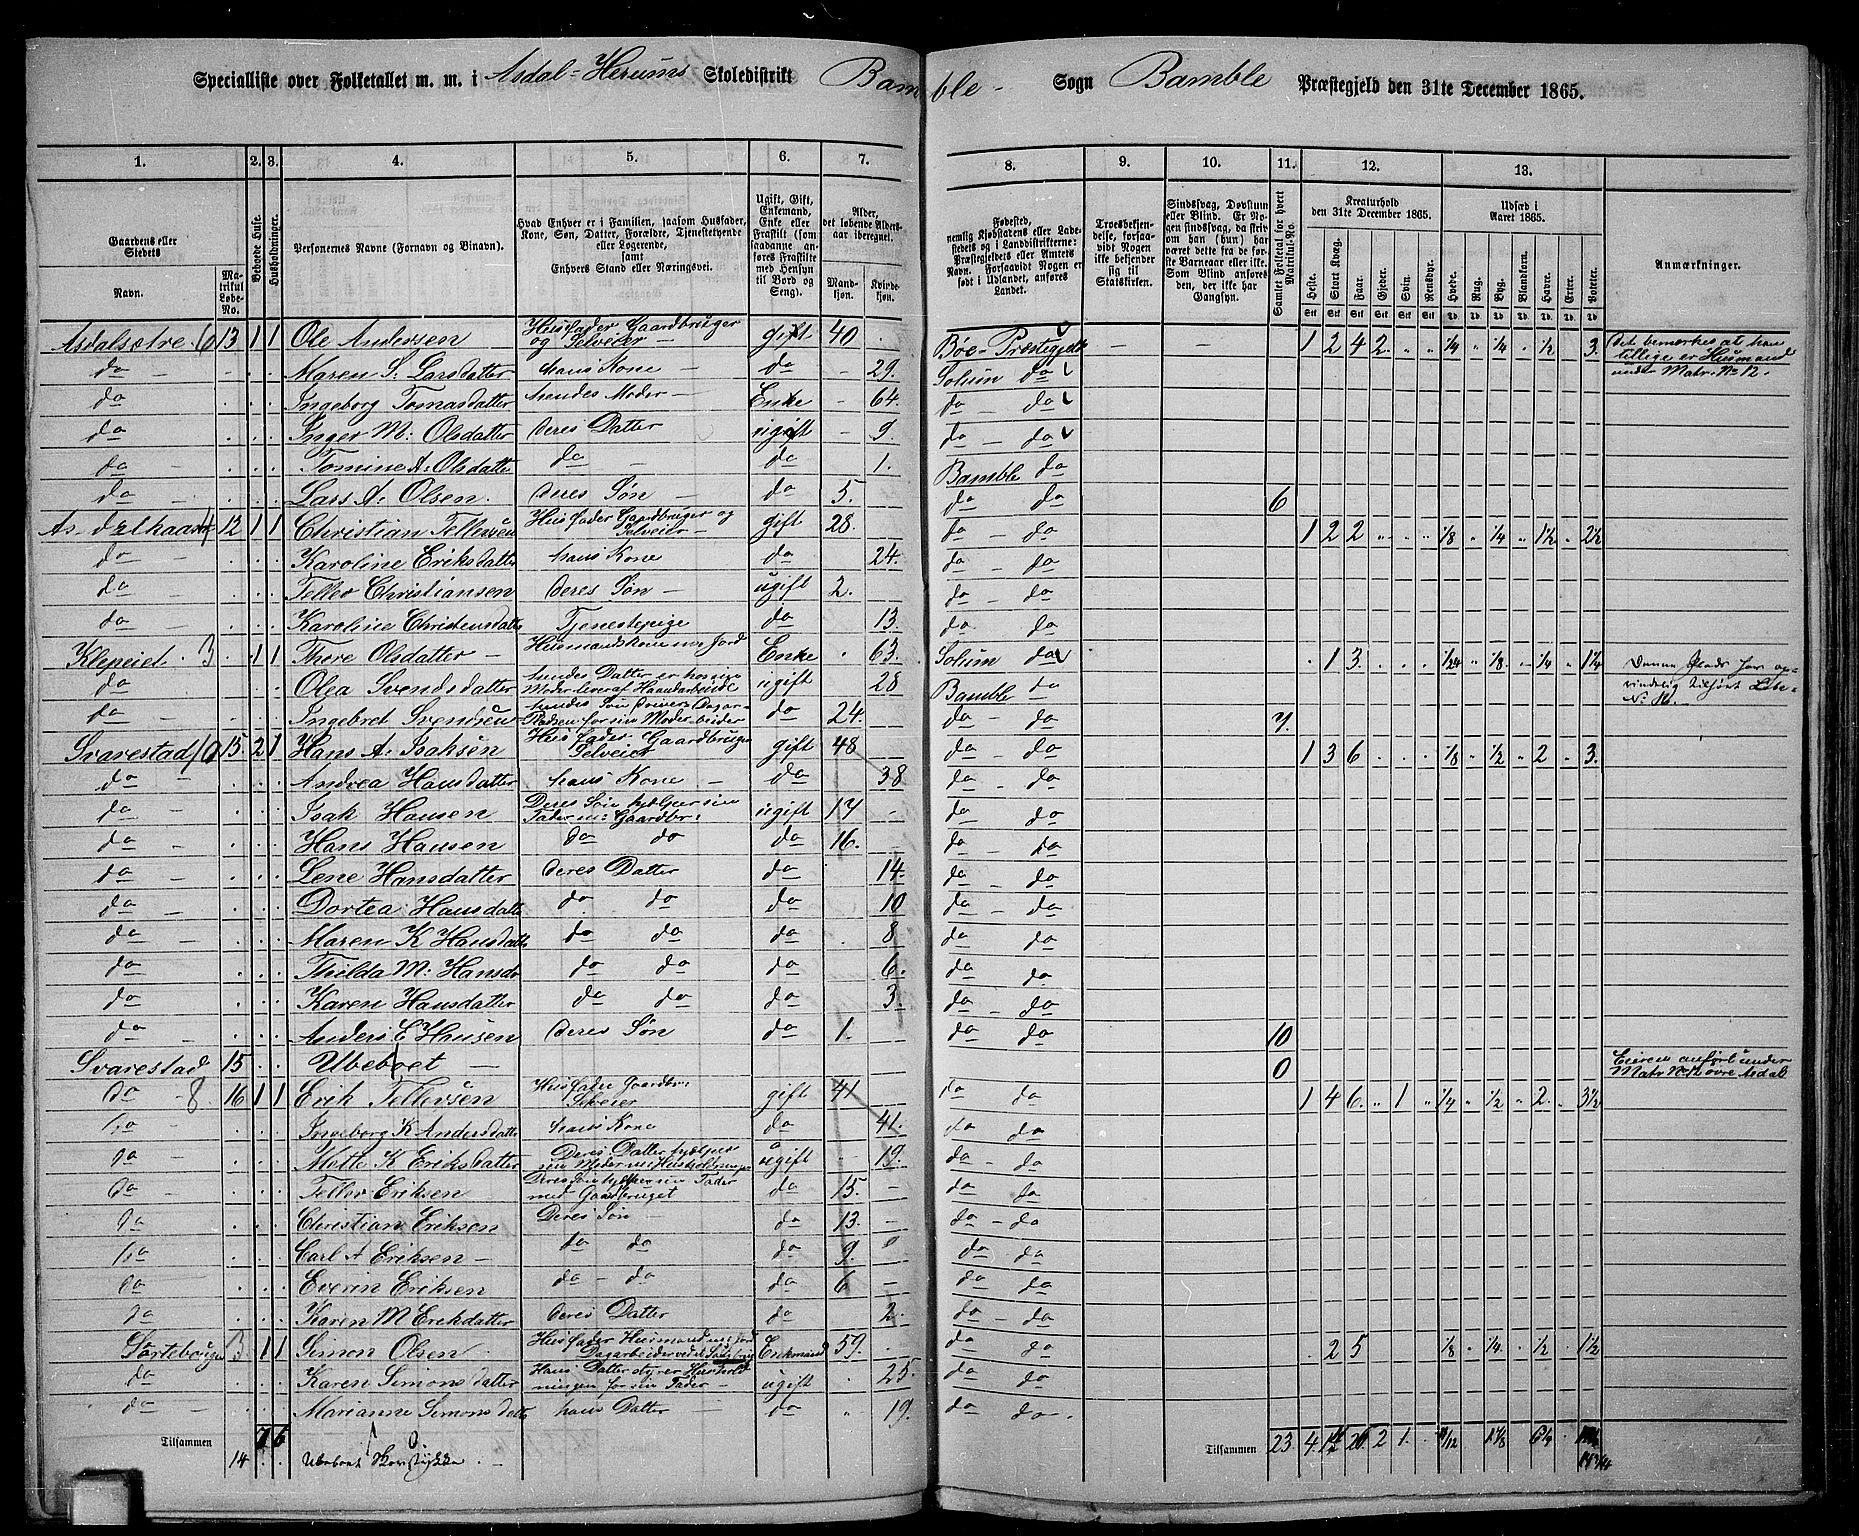 Specialliste over Folketallet m. m. i Asdal-Herums Skoledistrikt Bamble Sogn Bamble Præstegjeld den 31te December 1865.
1. 2. 3. 4. 5. 6. 7. 8. 9. 10. 11. 12. 13.
Gaardens eller Stedets Navn. Matrikul Løbe-No. Beboede Huse. Husholdninger. Personernes Navne (Fornavn og Binavn). Hvad Enhver er i Familien, saasom Husfader, Kone, Søn, Datter, Forældre, Tjenestetyende eller Logerende, samt Enhvers Stand eller Næringsvei. Ugift, Gift, Enkemand, Enke eller Fraskilt (som saadanne anføres Fraskilte med Hensyn til Bord og Seng). Alder, det løbende Aldersaar iberegnet. Mandkjøn. Kvindekjøn.
Fødested, nemlig Kjøbstadens eller Ladestedets og i Landdistrikterne: Præstegjeldets eller Amtets Navn. Forsaavidt Nogen er født i Udlandet, anføres Landet. Troesbekjendelse, forsaavidt Nogen ikke bekjender sig til Statskirken. Sindssvag, Døvstum eller Blind. Er Nogen sindssvag, da skriv om han (hun) har været dette fra de første Barneaar eller ikke. Som Blind anføres den, der ikke har Gangsyn. Samlet Folketal for hvert Matrikul-No. Kreaturhold den 31te December 1865. Udsæd i Aaret 1865. Anmærkninger.
Heste. Stort Kvæg. Faar. Gjeder. Svin. Rensdyr. Hvede. Rug. Byg. Blandkorn. Havre. Erter. Poteter.
Asdalsætre 6 13 1 1 Ole Andersen Husfader Gaardbruger og Selveier gift 40 Bøe-Præstegjeld 1 2 4 2 1/4 1/4 1/2 3. Det bemærkes at han tillige er Husmand under Matr. No 12.
do Maren S. Larsdatter hans Kone do 29. Solum do
do Ingeborg Tomasdatter hendes Moder Enke 64. do - do
do Inger M: Olsdatter deres Datter ugift 9. do - do
do Tomine A. Olsdatter do do 1. Bamble do
do Lars A. Olsen. deres Søn do 5. do do 6
12 1 1 Christian Tellevsen Husfader Gaardbruger og Selveier gift 28. do - do 1 2 2 1/8 1/4 1 1/2 2 1/2
do Karoline Eriksdatter hans Kone do 24. do - do
do Tellev Christiansen deres Søn ugift 2. do - do
do Karoline Christensdatter Tjenestepige do 13. do do
Klepeiet. 3 1 1 Thore Olsdatter Husmandskone m Jord Enke 63. Solum do 1 3. 1/24 1/8 1/4 1 1/4
do Olea Svendsdatter hendes Datter er hos sin Moder lever af Haandarbeide ugift 28 Bamble do
do Ingebret Svendsen do 24. do - do 7.
Svarestad 10 15. 2 1 Hans A. Isaksen Husfader Gaardbruger Selveier gift 48 do - do 1 3 6 1/8 1/2 2 3.
do Andrea Hansdatter hans Kone do 38 do - do
do Isak Hansen Deres Søn hjælper sin Fader m: Gaardbr: ugift 17 do do
do Hans Hansen do do do 16. do - do
do Lene Hansdatter deres Datter do 14. do - do
do Dortea Hansdatter do do do 10 do - do
do Maren K Hansdatter do do do 8 do do
do Thilda M: Hansdr do do do 6. do do
do Karen Hansdatter do do do 3. do - do
do Anders E Hansen deres Søn do 1. do do 10
Svarestad 15 Ubeboet 0 Eieren anført under Matr No 12 øvre Asdal
do 8 16 1 1 Erik Tellevsen Husfader Gaardbr: Selveier gift 41 do do 1 4 6. 1 1/4 1/2 2 3 1/2
do Ingeborg K Andersdatter hans Kone do 41. do do
do Mette K Eriksdatter Deres Datter hjælper sin Moder m: Husholdningen ugift 19. do - do
do Tellev Eriksen Deres Søn hjælper sin Fader med Gaardbruget do 15. do do
do Christian Eriksen Deres Søn do 13. do - do
do Carl A Eriksen do do do 9. do do
do Everin Eriksen do - do do 6 do do
do Karen M Erikdatter deres Datter do 2. do - do
3 1 1 Simon Olsen Husfader Husmand m: Jord Enkemand 59. do do 2 5 1/8 1/4. 1/2 1 1/2
do Karen Simonsdatter Hans Datter styrer Husholdningen for sin Fader ugift 25. do do
do Marianne Simonsdatter hans Datter do 19. do do.
Tilsammen 7 6 Tilsammen 23. 4. 26 2 1.
14 Ubeboet